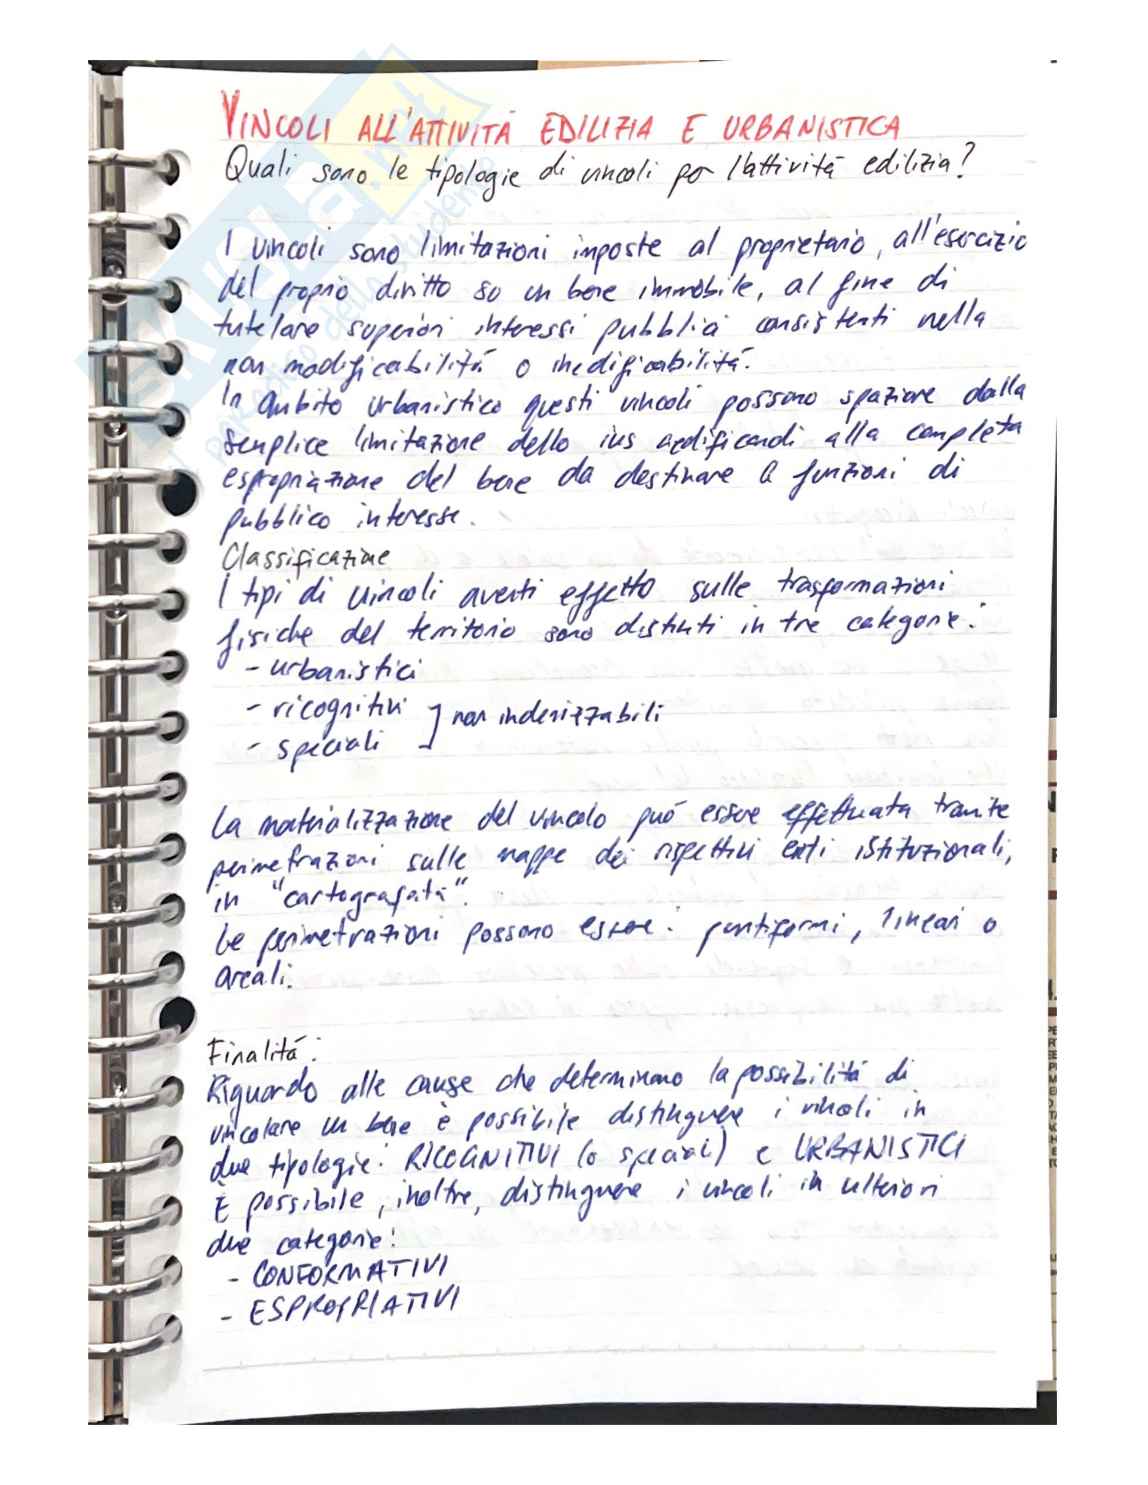 VINCOLI ALL'ATTIVITÁ EDILIZIA E URBANISTICA
Quali sono le tipologie di vincoli per l'attivitá edilizia?
I vincoli sono limitazioni imposte al proprietario, all'esercizio
del proprio diritto su un bene immobile, al fine di
tutelare superiori interessi pubblici consistenti nella
non modificabilitá o inedificabilitá.
In ambito urbanistico questi vincoli possono spaziare dalla
semplice limitazione dello ius aedificandi alla completa
espropriazione del bene da destinare a funzioni di
pubblico interesse.
Classificazione
I tipi di vincoli aventi effetto sulle trasformazioni
fisiche del territorio sono distinti in tre categorie:
- urbanistici
- ricognitivi
] non indenizzabili
- speciali
La materializzazione del vincolo puó essere effettuata tramite
perimetrazioni sulle mappe dei rispettivi enti istituzionali,
in "cartografata".
Le perimetrazioni possono essere: puntiformi, lineari o
areali.
Finalitá:
Riguardo alle cause che determinano la possibilitá di
vincolare un bene è possibile distinguere i vincoli in
due tipologie: RICOGNITIVI (o speciali) e URBANISTICI
È possibile, inoltre, distinguere i vincoli in ulteriori
due categorie:
- CONFORMATIVI
- ESPROPRIATIVI